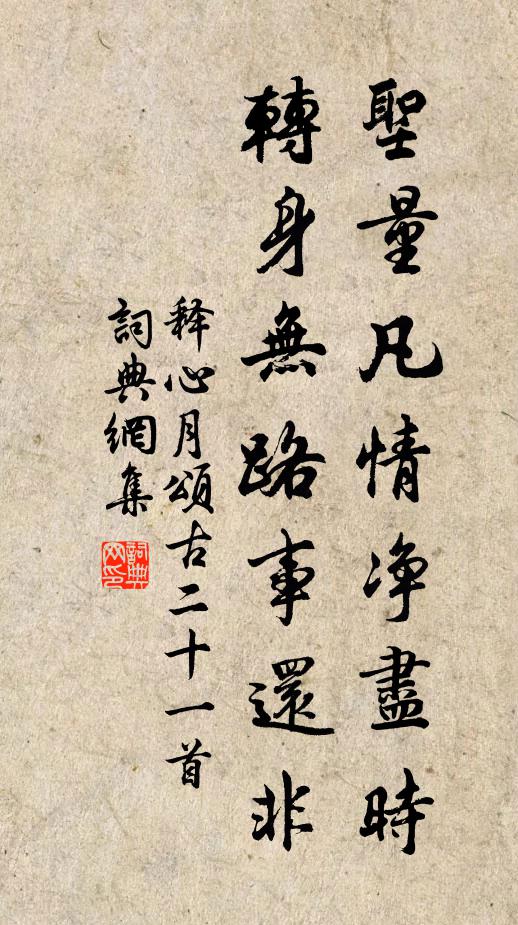 聖量凡情净盡時
轉身無路事還非
释心月頌古二十一首
詞典網集
詞典网印